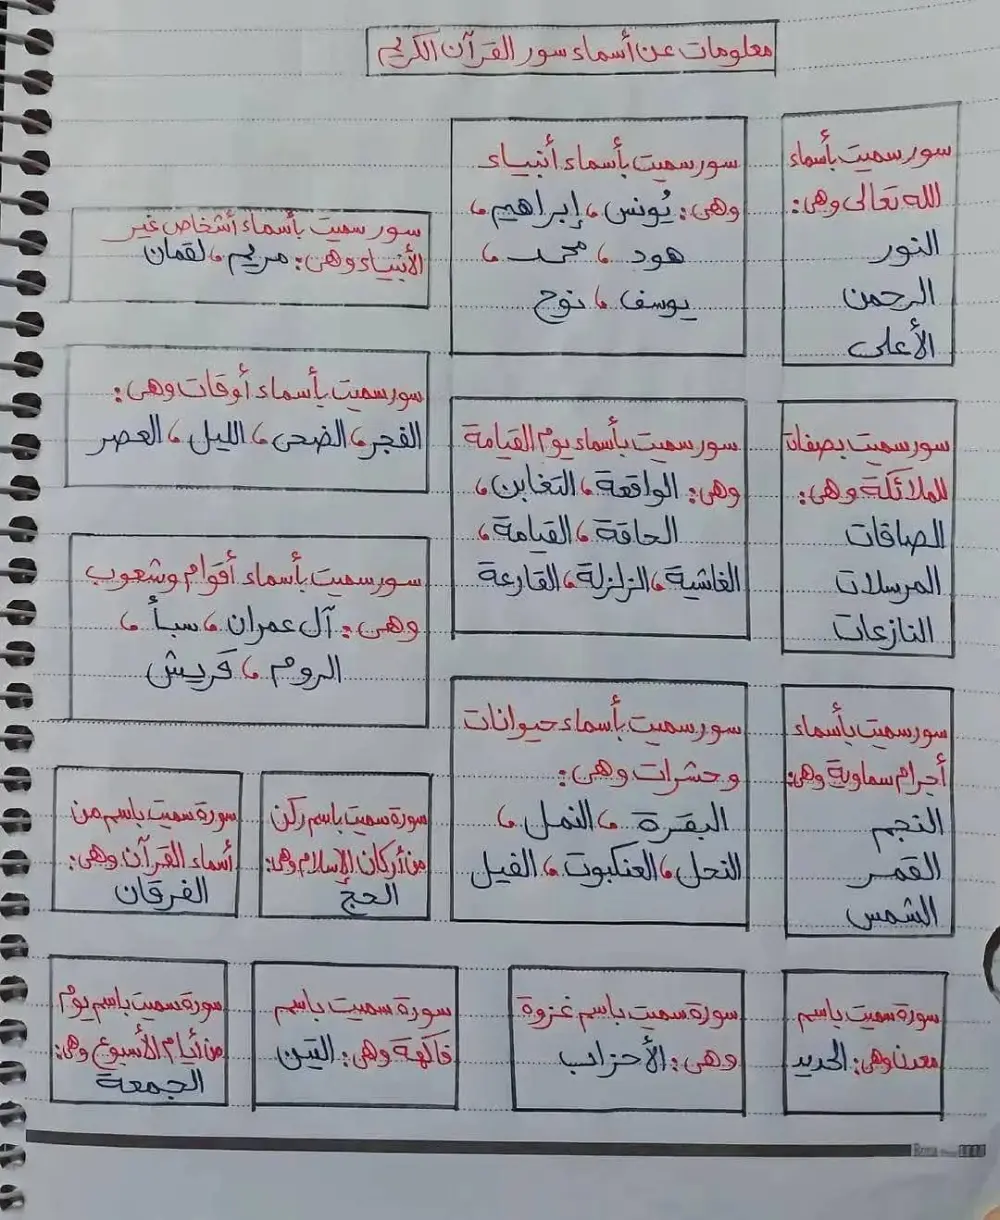 معلومات عن أسماء سور القرآن الكريم
سور سميت بأسماء
الله تعالى وهي:
النور
الرحمن
الأعلى
سور سميت بأسماء أنبياء
وهي: يُونس، إبراهيم،
هود، محمد،
يوسف، نوح
سور سميت بأسماء أشخاص غير
الأنبياء وهي: مريم، لقمان
سور سميت بأسماء أوقات وهي:
الفجر، الضحى، الليل، العصر
سور سميت بصفات
الملائكة وهي:
الصافات
المرسلات
النازعات
سور سميت بأسماء يوم القيامة
وهي: الواقعة، التغابن،
الحاقة، القيامة،
الغاشية، الزلزلة، القارعة
سور سميت بأسماء أقوام وشعوب
وهي: آل عمران، سبأ،
الروم، قريش
سور سميت بأسماء
أجرام سماوية وهي:
النجم
القمر
الشمس
سور سميت بأسماء حيوانات
وحشرات وهي:
البقرة، النمل،
النحل، العنكبوت، الفيل
سورة سميت باسم ركن
من أركان الإسلام وهي:
الحجّ
سورة سميت باسم من
أسماء القرآن وهي:
الفرقان
سورة سميت باسم
معدن وهي: الحديد
سورة سميت باسم غزوة
وهي: الأحزاب
سورة سميت باسم
فاكهة وهي: التين
سورة سميت باسم يوم
من أيام الأسبوع وهي:
الجمعة